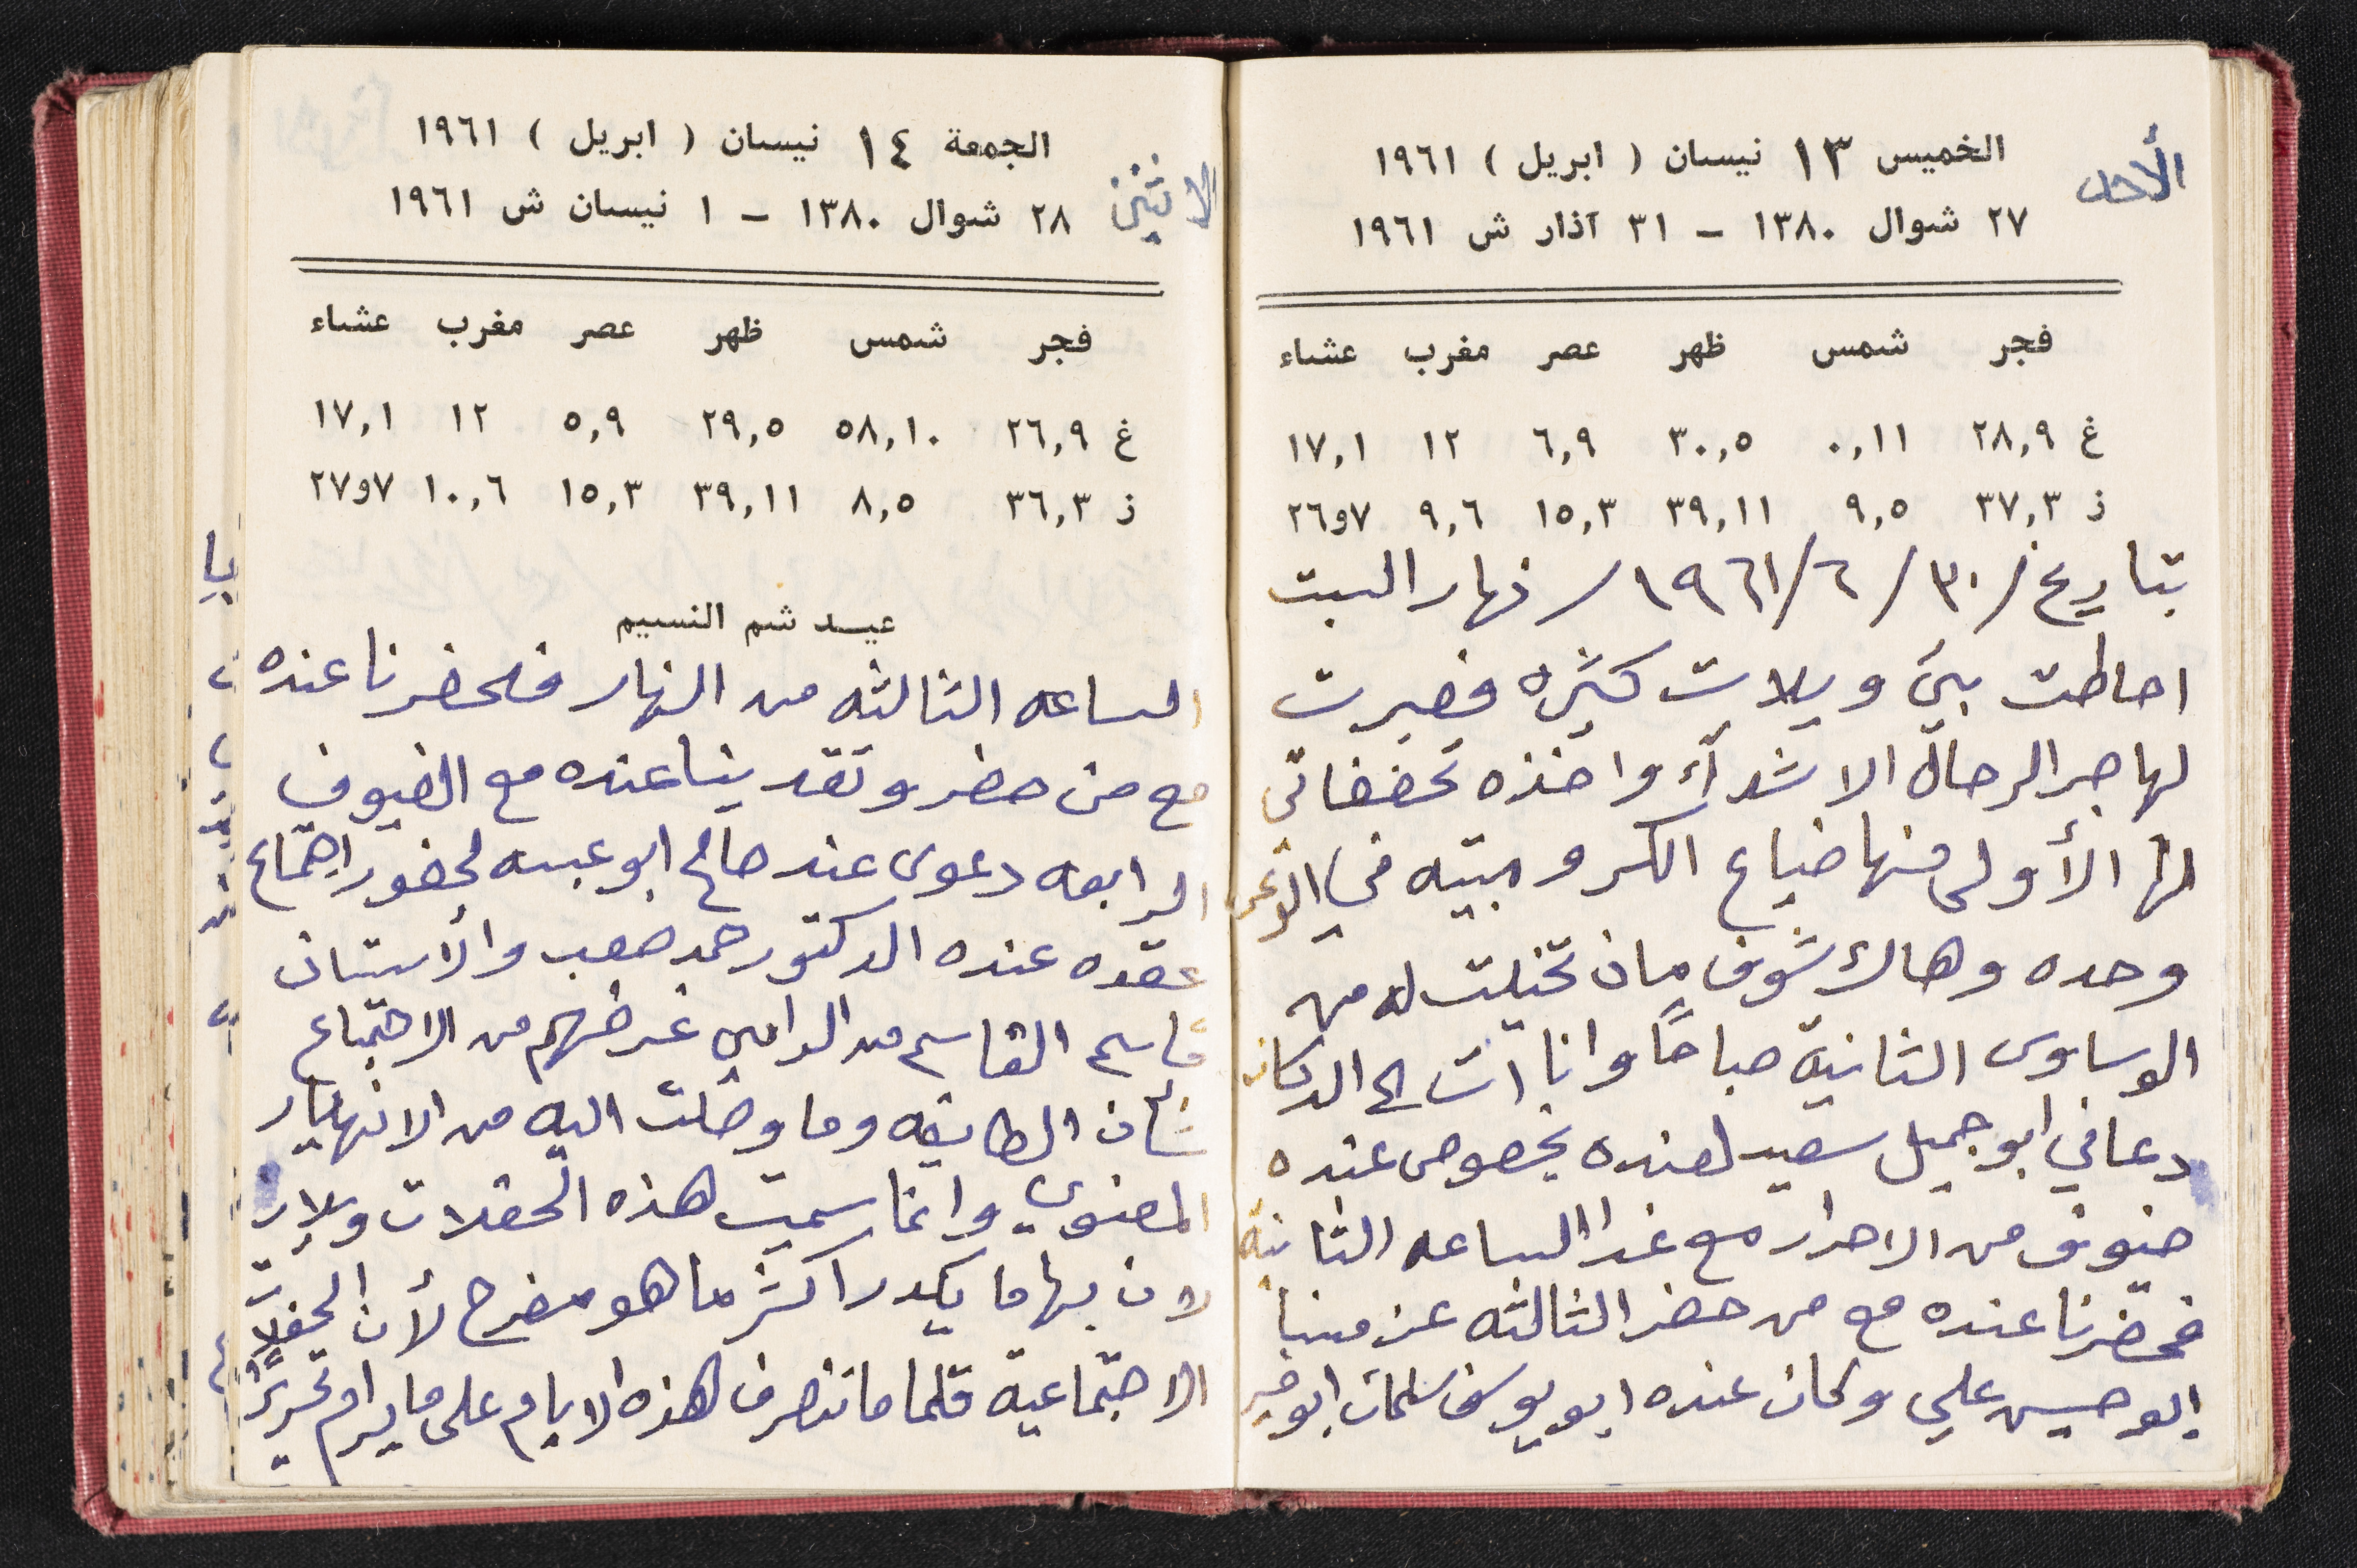 الأحد
الخميس ١٣ نيسان ( ابريل ) ١٩٦١
٢٧ شوال ١٣٨٠ - ٣١ آذار ش ١٩٦١
فجر شمس ظهر عصر مغرب عشاء
غ ٢٨,٩ ٠,١١ ٣٠,٥ ٦,٩ ١٢ ١٧,١
ز ٣٧,٣ ٩,٥ ٣٩,١١ ١٥,٣ ٩,٦ ٧و٢٦
بتاريخ / ٣٠ / ٦ / ١٩٦١ / نهار السبت
احاطت بيَ ويلات كثيره فصبرت
لها صبر الرجال الاشدآء واخذه تحفضاتي
لها الأولى منها ضياع الكر ومبيته في الوعر
وحده وهاك شوف مان تخيلت له من
الوساوس الثانية صباحاً وانا ات الى الدكان
دعاني ابو جميل سعيد لعنده بخصوص عنده
ضيوف من الاحرار مع غدا الساعه الثانية
فحضرنا عنده مع من حضر الثالثه عزمنا
ابو حسين علي وكان عنده ابو يوسف سلمان ابو
الاثنين
الجمعة ١٤ نيسان ( ابريل ) ١٩٦١
٢٨ شوال ١٣٨٠ - ١ نيسان ش ١٩٦١
فجر شمس ظهر عصر مغرب عشاء
غ ٢٦,٩ ٥٨,١٠ ٢٩,٥ ٥,٩ ١٢ ١٧,١
ز ٣٦,٣ ٨,٥ ٣٩,١١ ١٥,٣ ١٠,٦ ٧و٢٧
عيد شم النسيم
الساعه الثالثه من النهار فلحضرنا عنده
مع من حضر وتغدينا عنده مع الضيوف
الرابعه دعوى عند صالح ابو عبسه لحضور اجتماع
عقده عنده الدكتور حمد صعب والأستاذ
قاسم القاسم من الرامي غرضهم من الاجتماع
شأن الطايفه وما وصلت اليه من الانهيار
المعنوي وانما سميت هذه الحفلات ويلات
لان بها ما يكدر اكثر ما هو مفرح لأن الحفلات
الاجتماعية قلما ما تنصرف لهذه الايام على ما يرام